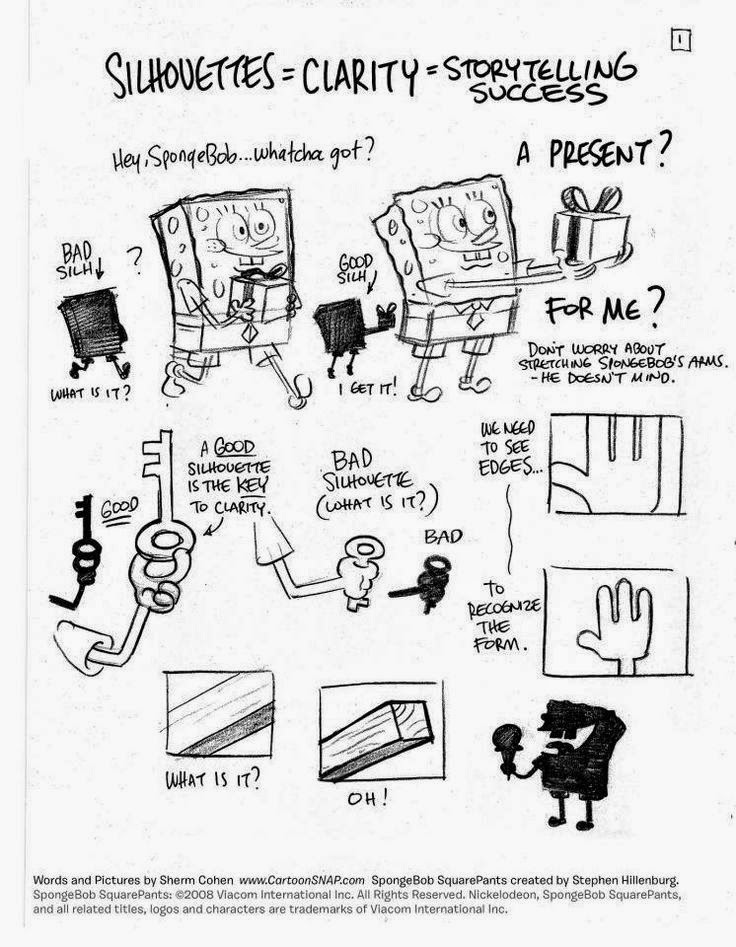 1
SILHOUETTES = CLARITY = STORYTELLING
SUCCESS
Hey, SpongeBob...whatcha got?
A PRESENT?
BAD
SILH
?
WHAT IS IT?
GOOD
SILH
I GET IT!
FOR ME?
DON'T WORRY ABOUT
STRETCHING SPONGEBOB'S ARMS.
- HE DOESN'T MIND.
GOOD
A GOOD
SILHOUETTE
IS THE KEY
TO CLARITY.
BAD
SILHOUETTE
(WHAT IS IT?)
BAD
WE NEED
TO SEE
EDGES...
TO
RECOGNIZE
THE
FORM.
WHAT IS IT?
OH!
Words and Pictures by Sherm Cohen www.CartoonSNAP.com SpongeBob SquarePants created by Stephen Hillenburg.
SpongeBob SquarePants: ©2008 Viacom International Inc. All Rights Reserved. Nickelodeon, SpongeBob SquarePants,
and all related titles, logos and characters are trademarks of Viacom International Inc.